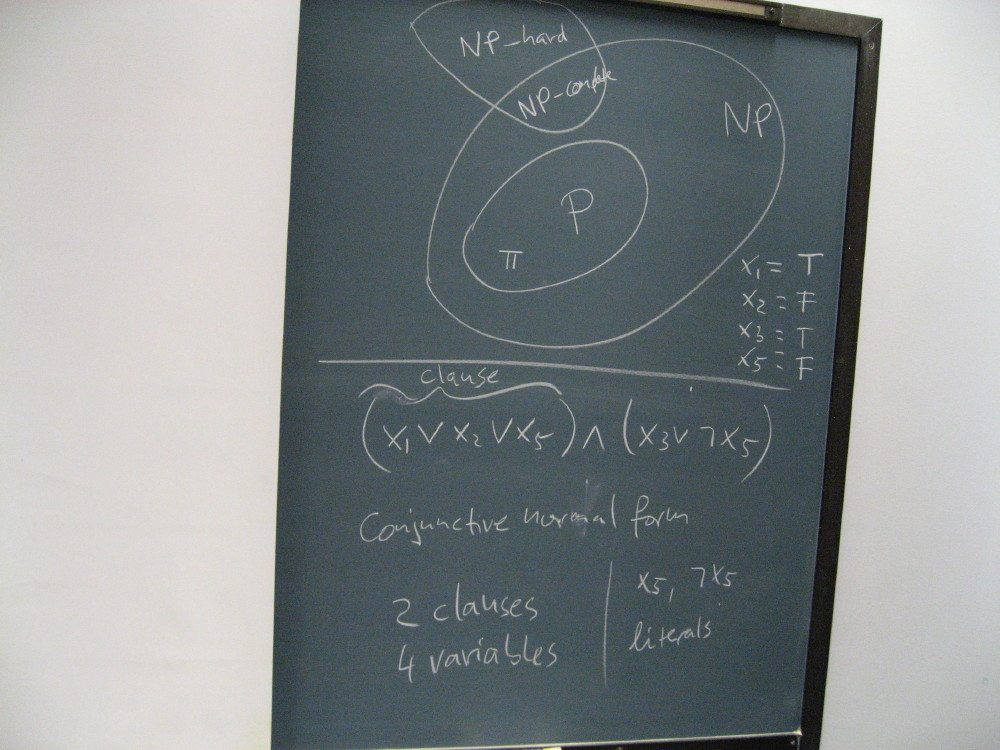 NP-hard
NP-complete
NP
P
π
x₁ = T
x₂ = F
x₃ = T
x₅ = F
clause
(x₁ ∨ x₂ ∨ x₅) ∧ (x₃ ∨ ¬x₅)
Conjunctive normal form
2 clauses
4 variables
x₅, ¬x₅
literals